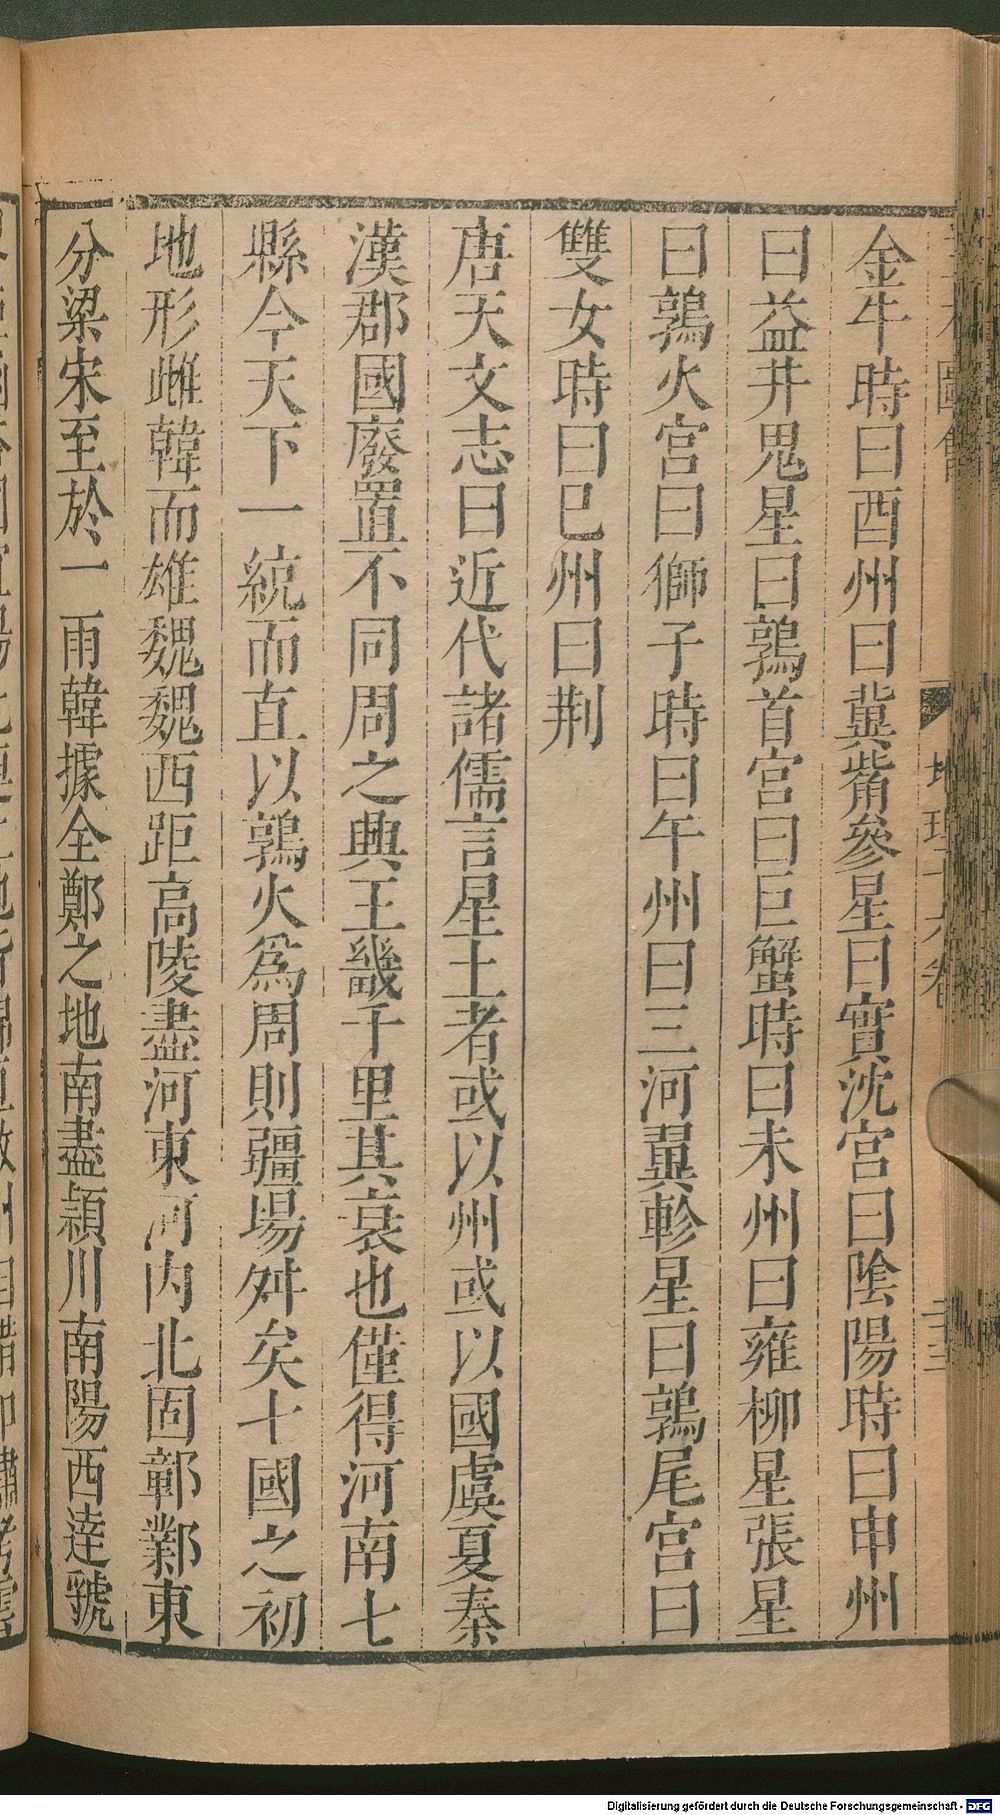 金牛時曰酉州曰冀觜參星曰實沈宮曰陰陽時曰申州
曰益井鬼星曰鶉首宮曰巨蟹時曰未州曰雍柳星張星
曰鶉火宮曰獅子時曰午州曰三河翼軫星曰鶉尾宮曰
雙女時曰巳州曰荆
唐天文志曰近代諸儒言星土者或以州或以國虞夏秦
漢郡國廢置不同周之興王畿千里其衰也僅得河南七
縣今天下一統而直以鶉火爲周則疆場舛矣七國之初
地形雌韓而雄魏魏西距高陵盡河東河内北固鄣鄴東
分梁宋至於一雨韓據全鄭之地南盡潁川南陽西達虢
Digitalisierung gefördert durch die Deutsche Forschungsgemeinschaft - DFG